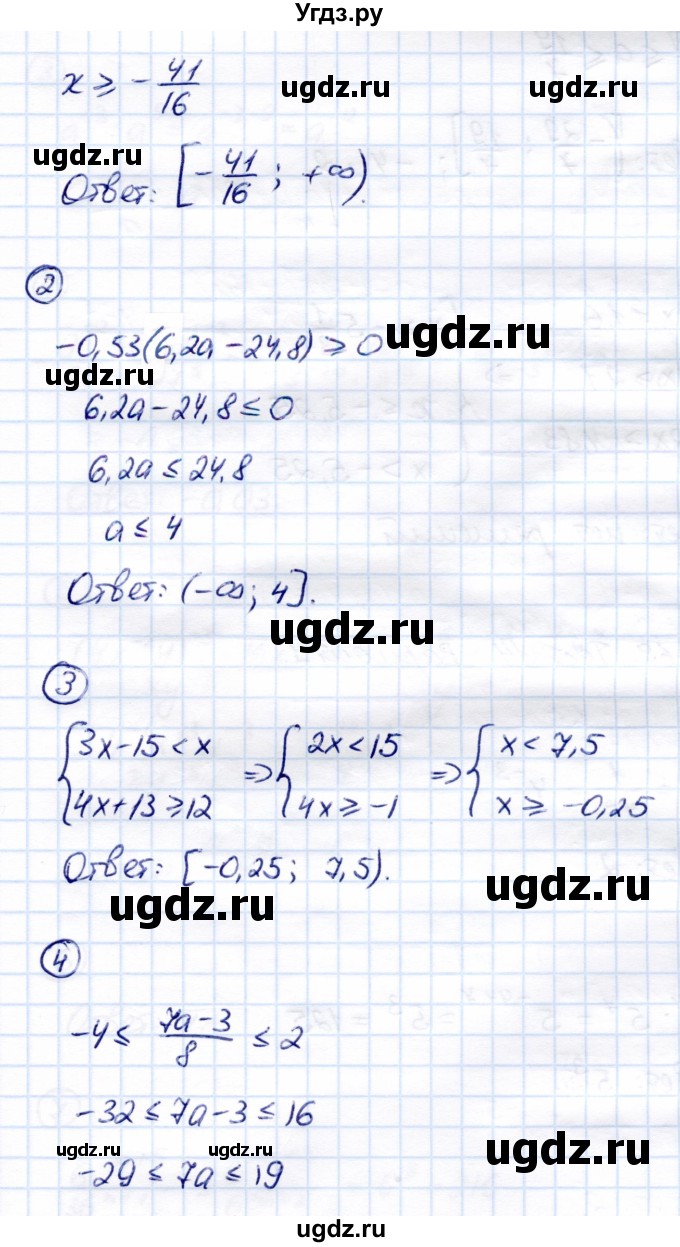 Угдз.ру
x ≥ -41/16
ugdz.ru
ugdz.ru
Ответ: [-41/16; +∞).
2
-0,53(6,2a - 24,8) ≥ 0
ugdz.ru
ugdz.ru
6,2a - 24,8 ≤ 0
6,2a ≤ 24,8
a ≤ 4
Ответ: (-∞; 4].
ugdz.ru
3
{3x - 15 < x => {2x < 15 => {x < 7,5
{4x + 13 ≥ 12 {4x ≥ -1 {x ≥ -0,25
Ответ: [-0,25; 7,5).
ugdz.ru
ugdz.ru
4
-4 ≤ (7a - 3)/8 ≤ 2
-32 ≤ 7a - 3 ≤ 16
ugdz.ru ugdz.ru ugdz.ru
-29 ≤ 7a ≤ 19
ugdz.ru